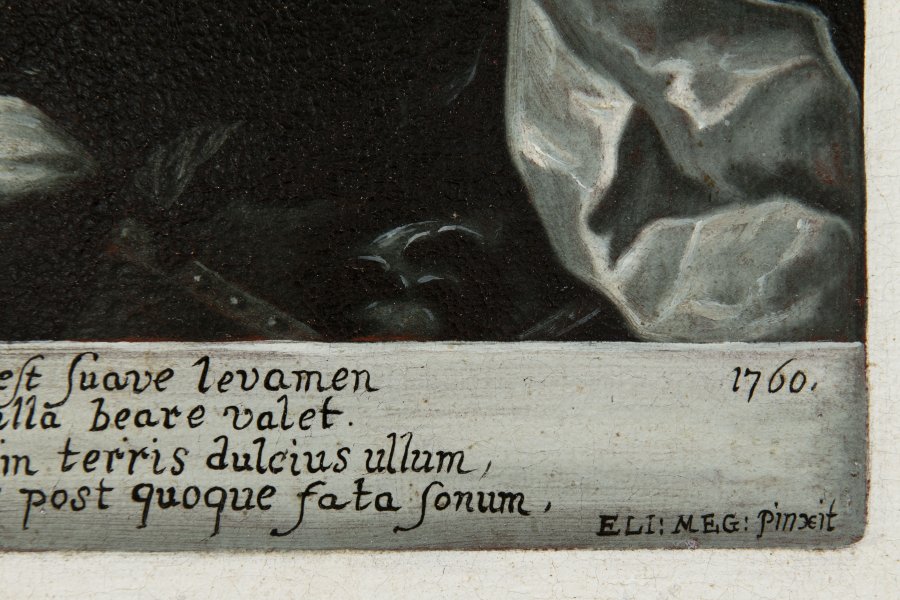 eſt ſuave levamen
illa beare valet.
in terris dulcius ullum,
post quoque fata ſonum.
1760.
ELI: MEG: pinxit